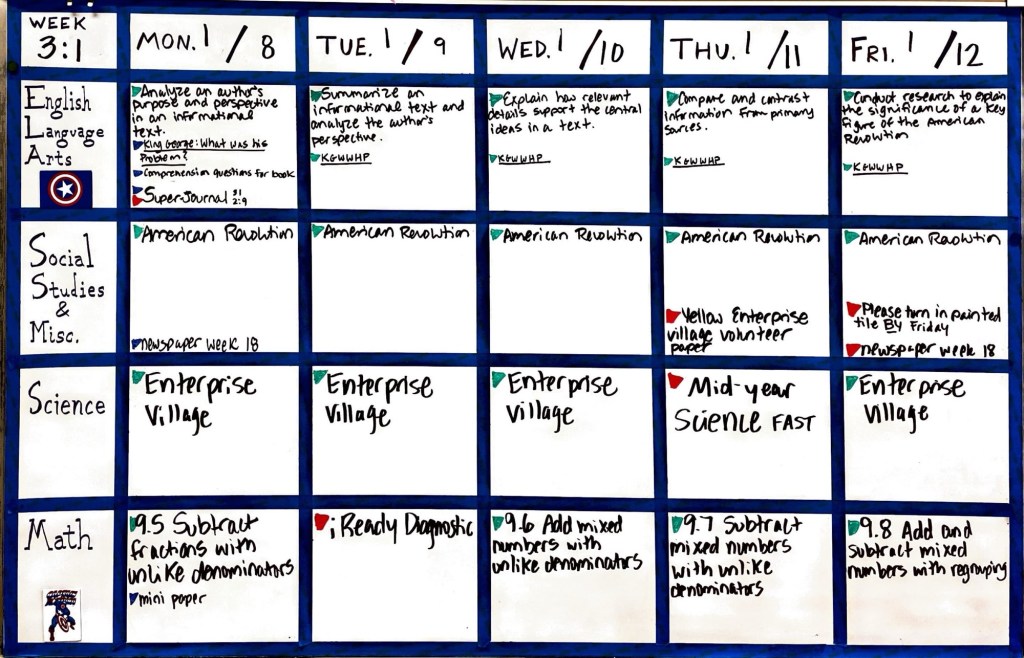 WEEK
3:1
MON. 1/8
TUE. 1/9
WED. 1/10
THU. 1/11
FRI. 1/12
English
Language
Arts
Analyze an author's
purpose and perspective
in an informational
text.
King George: What was his
Problem?
Comprehension questions for book
Super-Journal 3:1
2:9
Summarize an
informational text and
analyze the author's
perspective.
KGWWHP
Explain how relevant
details support the central
ideas in a text.
KGWWHP
Compare and contrast
information from primary
sources.
KGWWHP
Conduct research to explain
the significance of a key
figure of the American
Revolution
KGWWHP
Social
Studies
&
Misc.
American Revolution
newspaper week 18
American Revolution
American Revolution
American Revolution
Yellow Enterprise
village volunteer
paper
American Revolution
Please turn in painted
tile By Friday
newspaper week 18
Science
Enterprise
Village
Enterprise
Village
Enterprise
Village
Mid-year
Science FAST
Enterprise
Village
Math
9.5 Subtract
fractions with
unlike denominators
mini paper
iReady Diagnostic
9.6 Add mixed
numbers with
unlike denominators
9.7 Subtract
mixed numbers
with unlike
denominators
9.8 Add and
subtract mixed
numbers with regrouping